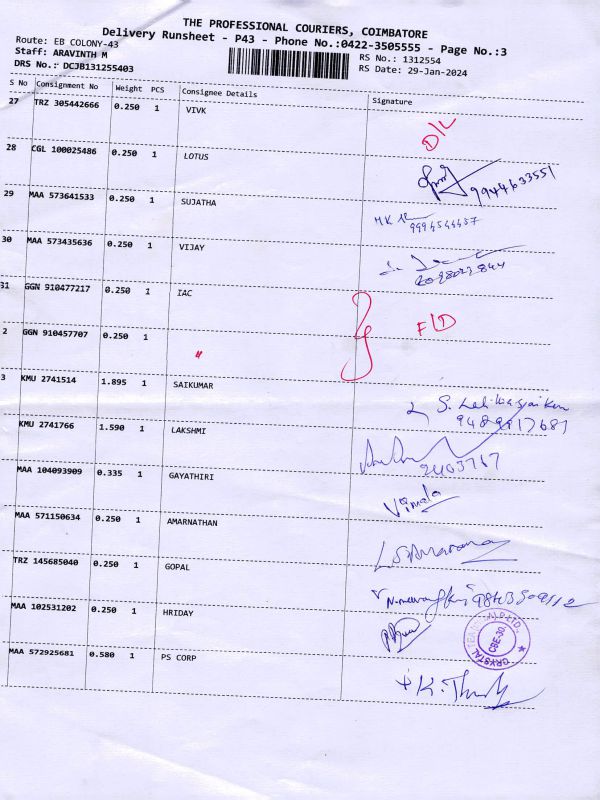 THE PROFESSIONAL COURIERS, COIMBATORE
Delivery Runsheet - P43 - Phone No.:0422-3505555 - Page No.:3
Route: EB COLONY-43
Staff: ARAVINTH M
RS No.: 1312554
DRS No.: DCJB131255403
RS Date: 29-Jan-2024
S No Consignment No Weight PCS Consignee Details Signature
27 TRZ 305442666 0.250 1 VIVK D/L
28 CGL 100025486 0.250 1 LOTUS 9944633551
29 MAA 573641533 0.250 1 SUJATHA
30 MAA 573435636 0.250 1 VIJAY
31 GGN 910477217 0.250 1 IAC
2 GGN 910457707 0.250 1 " F/D
3 KMU 2741514 1.895 1 SAIKUMAR
KMU 2741766 1.590 1 LAKSHMI
MAA 104093909 0.335 1 GAYATHIRI Vimala
MAA 571150634 0.250 1 AMARNATHAN
TRZ 145685040 0.250 1 GOPAL
MAA 102531202 0.250 1 HRIDAY
CRYSTAL CBE-30
MAA 572925681 0.580 1 PS CORP